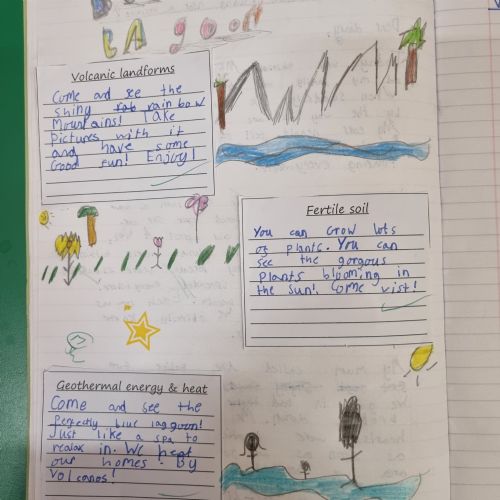 a good
Volcanic landforms
Come and see the
shing rainbow
Mountains! Take
pictures with it
and have some
Good fun! Enjoy!
Fertile soil
You can Grow lots
of plants. You can
see the gorgous
plants blooming in
the sun! Come vist!
Geothermal energy & heat
Come and see the
perfectly blue laggoon!
Just like a spa to
realax in. We heat
our homes by
Volcanos!